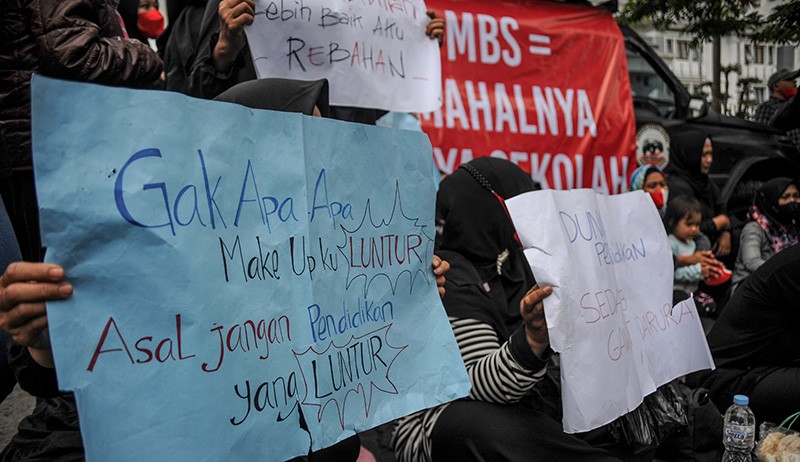 Lebih Baik Aku
REBAHAN
MBS =
MAHALNYA
SEKOLAH
Gak Apa Apa
Make Up ku LUNTUR
Asal jangan Pendidikan
yang LUNTUR
DUNIA
Pendidikan
SEDANG
GAWAT DARURAT